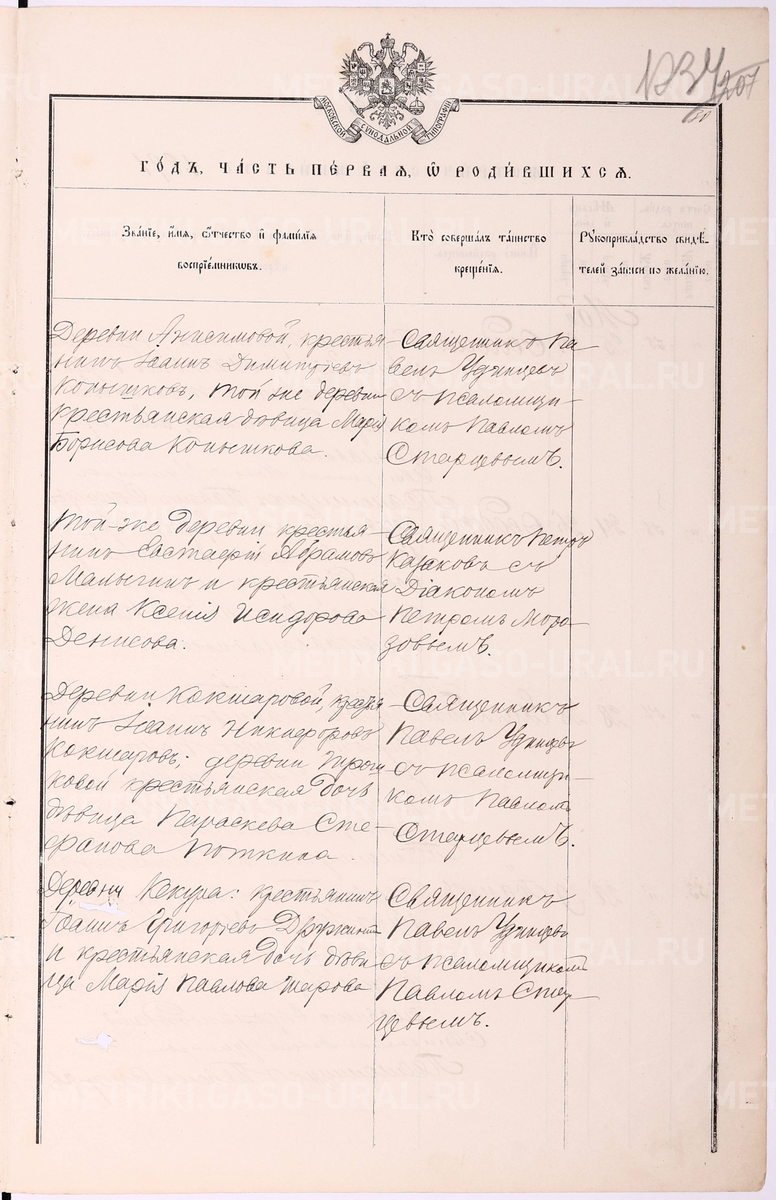 207
МОСКОВСКОЙ СѴНОДАЛЬНОЙ ТИПОГРАФІИ
ГО́ДЪ, ЧА́СТЬ ПЕ́РВАѦ, Ѡ҆ РОДИ́ВШИХСѦ.
Зва́нїе, и҆́мѧ, ѻ҆́тчество и҆ фамѵ́лїѧ
воспрїе́мниковъ.
Кто̀ соверша́лъ та́инство
креще́нїѧ.
Рꙋкоприкла́дство свидѣ́-
телей за́писи по жела́нїю.
Деревни Анисимовой, крестья-
нинъ Іоаннъ Димитріевъ
Копышковъ, той же деревни
крестьянская дѣвица Марія
Борисова Копышкова.
Священникъ Па-
велъ Удинцевъ
съ псаломщи-
комъ Павломъ
Старцевымъ.
Той-же деревни крестья-
нинъ Евстафій Аврамовъ
Малыгинъ и крестьянская
жена Ксенія Исидорова
Денисова.
Священникъ Петръ
Казаковъ съ
Діакономъ
Петромъ Моро-
зовымъ.
Деревни Кокшаровой, крестья-
нинъ Іоаннъ Никифоровъ
Кокшаровъ; деревни
крестьянская дочь
дѣвица Параскева Сте-
фанова
Священникъ
Павелъ Удинцевъ
съ псаломщи-
комъ Павломъ
Старцевымъ.
Деревни Кекура: крестьянинъ
Іоаннъ Григорьевъ Дружининъ
и крестьянская дочь дѣви-
ца Марія Павлова Шарова
Священникъ
Павелъ Удинцевъ
съ псаломщикомъ
Павломъ Стар-
цевымъ.
METRIKI.GASO-URAL.RU